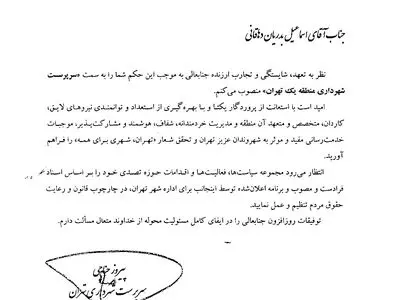 جناب آقای اسماعیل بدریان دهاقانی
نظر به تعهد، شایستگی و تجارب ارزنده جنابعالی به موجب این حکم شما را به سمت «سرپرست
شهرداری منطقه یک تهران» منصوب می‌کنم.
امید است با استعانت از پروردگار یکتا و با بهره‌گیری از استعداد و توانمندی نیروهای لایق،
کاردان، متخصص و متعهد آن منطقه و مدیریت خردمندانه، شفاف، هوشمند و مشارکت‌پذیر، موجبات
خدمت‌رسانی مفید و موثر به شهروندان عزیز تهران و تحقق شعار «تهران، شهری برای همه» را فراهم
آورید.
انتظار می‌رود مجموعه سیاست‌ها، فعالیت‌ها و اقدامات حوزه تصدی خود را بر اساس اسناد
فرادست و مصوب و برنامه اعلان‌شده توسط اینجانب برای اداره شهر تهران، در چارچوب قانون و رعایت
حقوق مردم تنظیم و عمل نمایید.
توفیقات روزافزون جنابعالی را در ایفای کامل مسئولیت محوله از خداوند متعال مسألت دارم.
پیروز حناچی
سرپرست شهرداری تهران